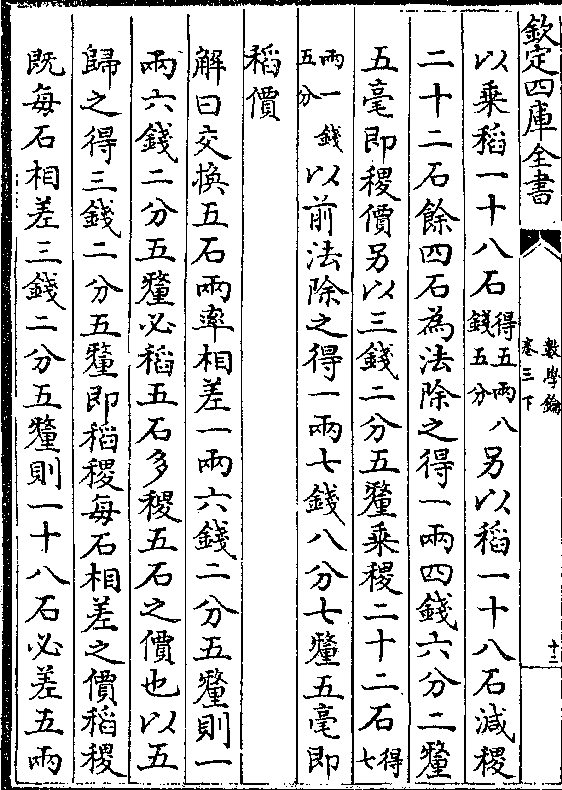 欽定四庫全書
數學鑰
卷三下
十三
以乗稻一十八石得五兩八錢五分另以稻一十八石減稷
二十二石餘四石為法除之得一兩四錢六分二釐
五毫即稷價另以三錢二分五釐乗稷二十二石得七
兩一錢五分以前法除之得一兩七錢八分七釐五毫即
稻價
解曰交換五石兩率相差一兩六錢二分五釐則一
兩六錢二分五釐必稻五石多稷五石之價也以五
歸之得三錢二分五釐即稻稷每石相差之價稻稷
既每石相差三錢二分五釐則一十八石必差五兩